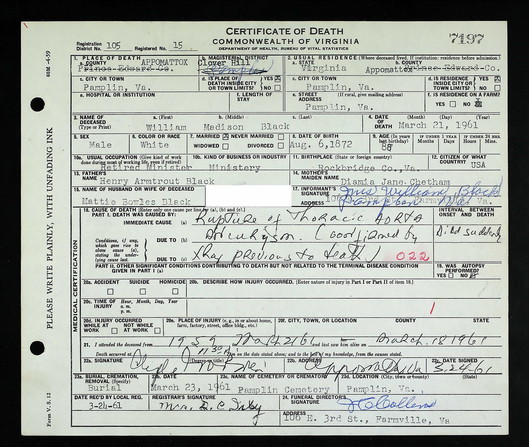 CERTIFICATE OF DEATH
COMMONWEALTH OF VIRGINIA
DEPARTMENT OF HEALTH, BUREAU OF VITAL STATISTICS
7197
Registration District No. 105 Registered No. 15
1. PLACE OF DEATH
a. COUNTY APPOMATTOX
Prince Edward Co.
b. MAGISTERIAL DISTRICT Clover Hill
2. USUAL RESIDENCE (Where deceased lived. If institution: residence before admission)
a. STATE Virginia
b. COUNTY Appomattox Prince Edward Co.
c. CITY OR TOWN Pamplin, Va.
d. IS PLACE OF DEATH INSIDE CITY OR TOWN LIMITS? YES NO
c. CITY OR TOWN Pamplin, Va.
d. IS RESIDENCE INSIDE CITY OR TOWN LIMITS? YES NO
e. HOSPITAL OR INSTITUTION
f. LENGTH OF STAY
e. STREET ADDRESS Pamplin, Va.
f. IS RESIDENCE ON A FARM? YES NO
3. NAME OF DECEASED (Type or Print)
a. (First) William b. (Middle) Madison c. (Last) Black
4. DATE OF DEATH March 21, 1961
5. SEX Male
6. COLOR OR RACE White
7. MARRIED NEVER MARRIED WIDOWED DIVORCED
8. DATE OF BIRTH Aug. 6, 1872
9. AGE 88
10a. USUAL OCCUPATION Retired Minister
10b. KIND OF BUSINESS OR INDUSTRY Ministery
11. BIRTHPLACE Rockbridge Co., Va.
12. CITIZEN OF WHAT COUNTRY? USA
13. FATHER'S NAME Henry Armtrout Black
14. MOTHER'S MAIDEN NAME Diamia Jane Chetham
15. NAME OF HUSBAND OR WIFE OF DECEASED
Mattie Bowles Black
17. INFORMANT'S SIGNATURE Mrs William Black
18. CAUSE OF DEATH
PART I. DEATH WAS CAUSED BY:
IMMEDIATE CAUSE (a) Rupture of Thoracic Aorta
DUE TO (b) Aneurysm (confirmed by
DUE TO (c) Xray previous to death)
022
INTERVAL BETWEEN ONSET AND DEATH
Died suddenly
PART II. OTHER SIGNIFICANT CONDITIONS CONTRIBUTING TO DEATH BUT NOT RELATED TO THE TERMINAL DISEASE CONDITION GIVEN IN PART I (a)
19. WAS AUTOPSY PERFORMED? YES NO
20a. ACCIDENT SUICIDE HOMICIDE
20b. DESCRIBE HOW INJURY OCCURRED
1
20c. TIME OF INJURY Hour, Month, Day, Year
20d. INJURY OCCURRED WHILE AT WORK NOT WHILE AT WORK
20e. PLACE OF INJURY
20f. CITY OR TOWN COUNTY STATE
21. I attended the deceased from 1959
March 18 1961
22a. SIGNATURE
22b. ADDRESS Appomattox Va
22c. DATE SIGNED 3-24-61
23a. BURIAL, CREMATION, REMOVAL (Specify) Burial
23b. DATE March 23, 1961
23c. NAME OF CEMETERY OR CREMATORY Pamplin Cemetery
23d. LOCATION Pamplin, Va.
DATE REC'D BY LOCAL REG. 3-24-61
REGISTRAR'S SIGNATURE
24. FUNERAL DIRECTOR'S SIGNATURE
ADDRESS 106 E. 3rd St., Farmville, Va
PLEASE WRITE PLAINLY, WITH UNFADING INK
MEDICAL CERTIFICATION
Form V. S. 12